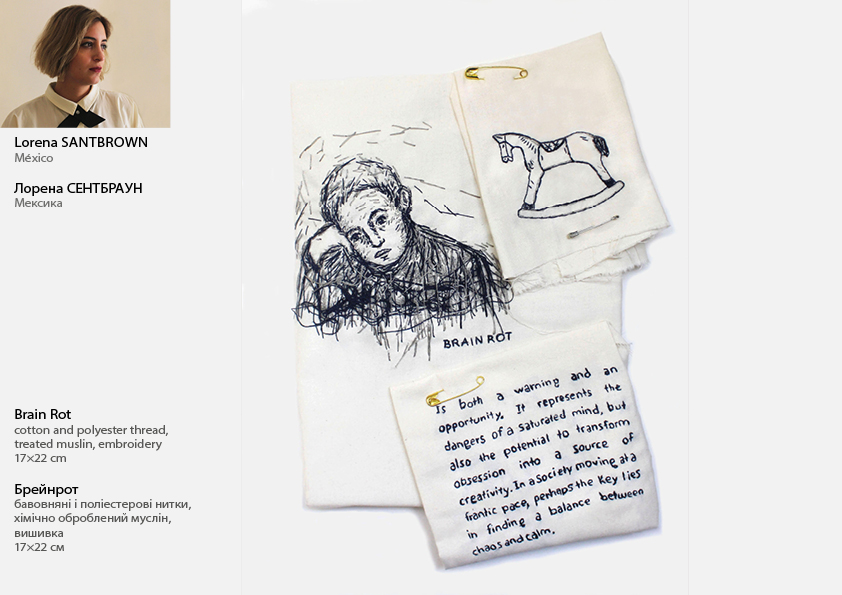 Lorena SANTBROWN
México
Лорена СЕНТБРАУН
Мексика
Brain Rot
cotton and polyester thread,
treated muslin, embroidery
17×22 cm
Брейнрот
бавовняні і поліестерові нитки,
хімічно оброблений муслін,
вишивка
17×22 см
BRAIN ROT
Is both a warning and an
opportunity. It represents the
dangers of a saturated mind, but
also the potential to transform
obsession into a source of
creativity. In a society moving at a
frantic pace, perhaps the key lies
in finding a balance between
chaos and calm.